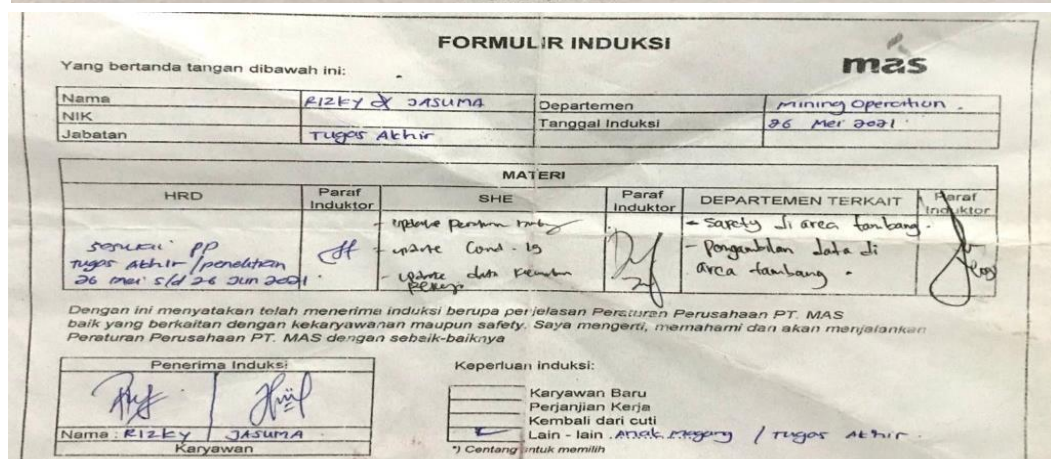 FORMULIR INDUKSI
mas
Yang bertanda tangan dibawah ini:
Nama RIZKY & JASUMA Departemen Mining Operation.
NIK Tanggal Induksi 26 Mei 2021
Jabatan Tugas Akhir
MATERI
HRD Paraf Induktor SHE Paraf Induktor DEPARTEMEN TERKAIT Paraf Induktor
sesuai PP
Tugas Akhir / penelitian
26 mei s/d 26 Jun 2021
- update
- update Cond - 19
- update data
- Safety di area tambang.
- Pengambilan data di
area tambang.
Dengan ini menyatakan telah menerima induksi berupa penjelasan Peraturan Perusahaan PT. MAS
baik yang berkaitan dengan kekaryawanan maupun safety. Saya mengerti, memahami dan akan menjalankan
Peraturan Perusahaan PT. MAS dengan sebaik-baiknya
Penerima Induksi
Nama : RIZKY JASUMA
Karyawan
Keperluan induksi:
Karyawan Baru
Perjanjian Kerja
Kembali dari cuti
Lain - lain . Anak magang / Tugas Akhir.
*) Centang untuk memilih